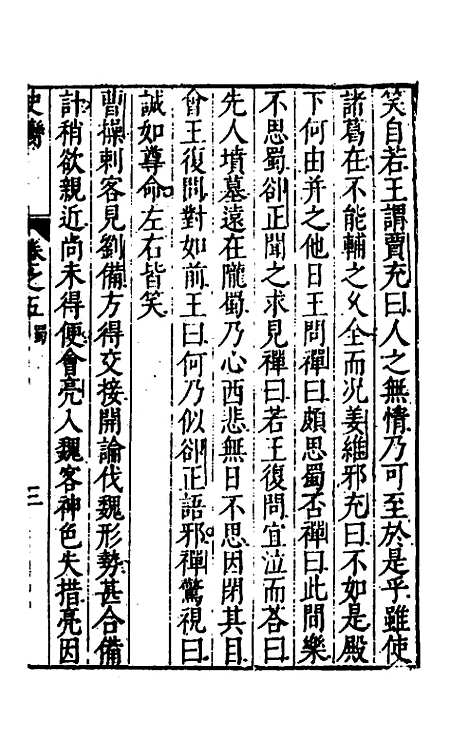 笑自若王謂賈充曰人之無情乃可至於是乎雖使
諸葛在不能輔之久全而况姜維邪充曰不如是殿
下何由并之他日王問禪曰頗思蜀否禪曰此間樂
不思蜀卻正聞之求見禪曰若王復問宜泣而荅曰
先人墳墓遠在隴蜀乃心西悲無日不思因閉其目
會王復問對如前王曰何乃似卻正語邪禪驚視曰
誠如尊命左右皆笑
曹操刺客見劉備方得交接開論伐魏形勢甚合備
計稍欲親近尚未得便會亮入魏客神色失措亮因
史 卷之五 蜀 三